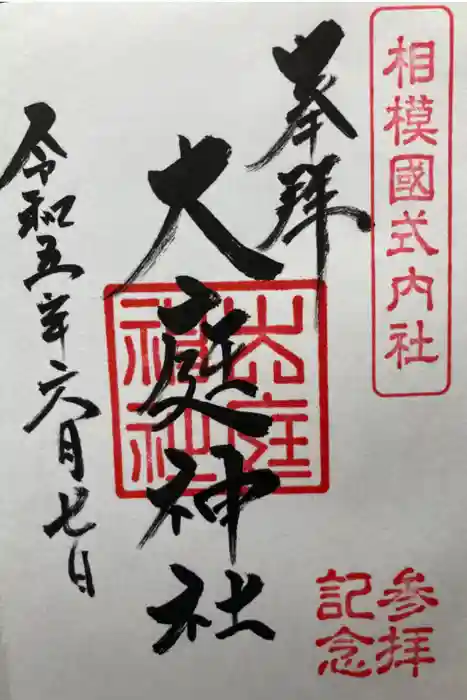 相模國式内社
奉拝
大庭神社
大庭神社
令和五年六月七日
参拝
記念